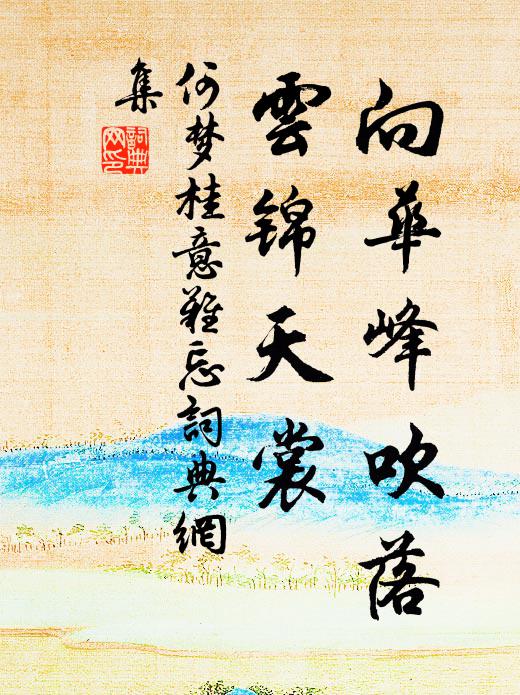 向華峰吹落
雲錦天裳
何梦桂意難忘詞典網
集
詞典
网印